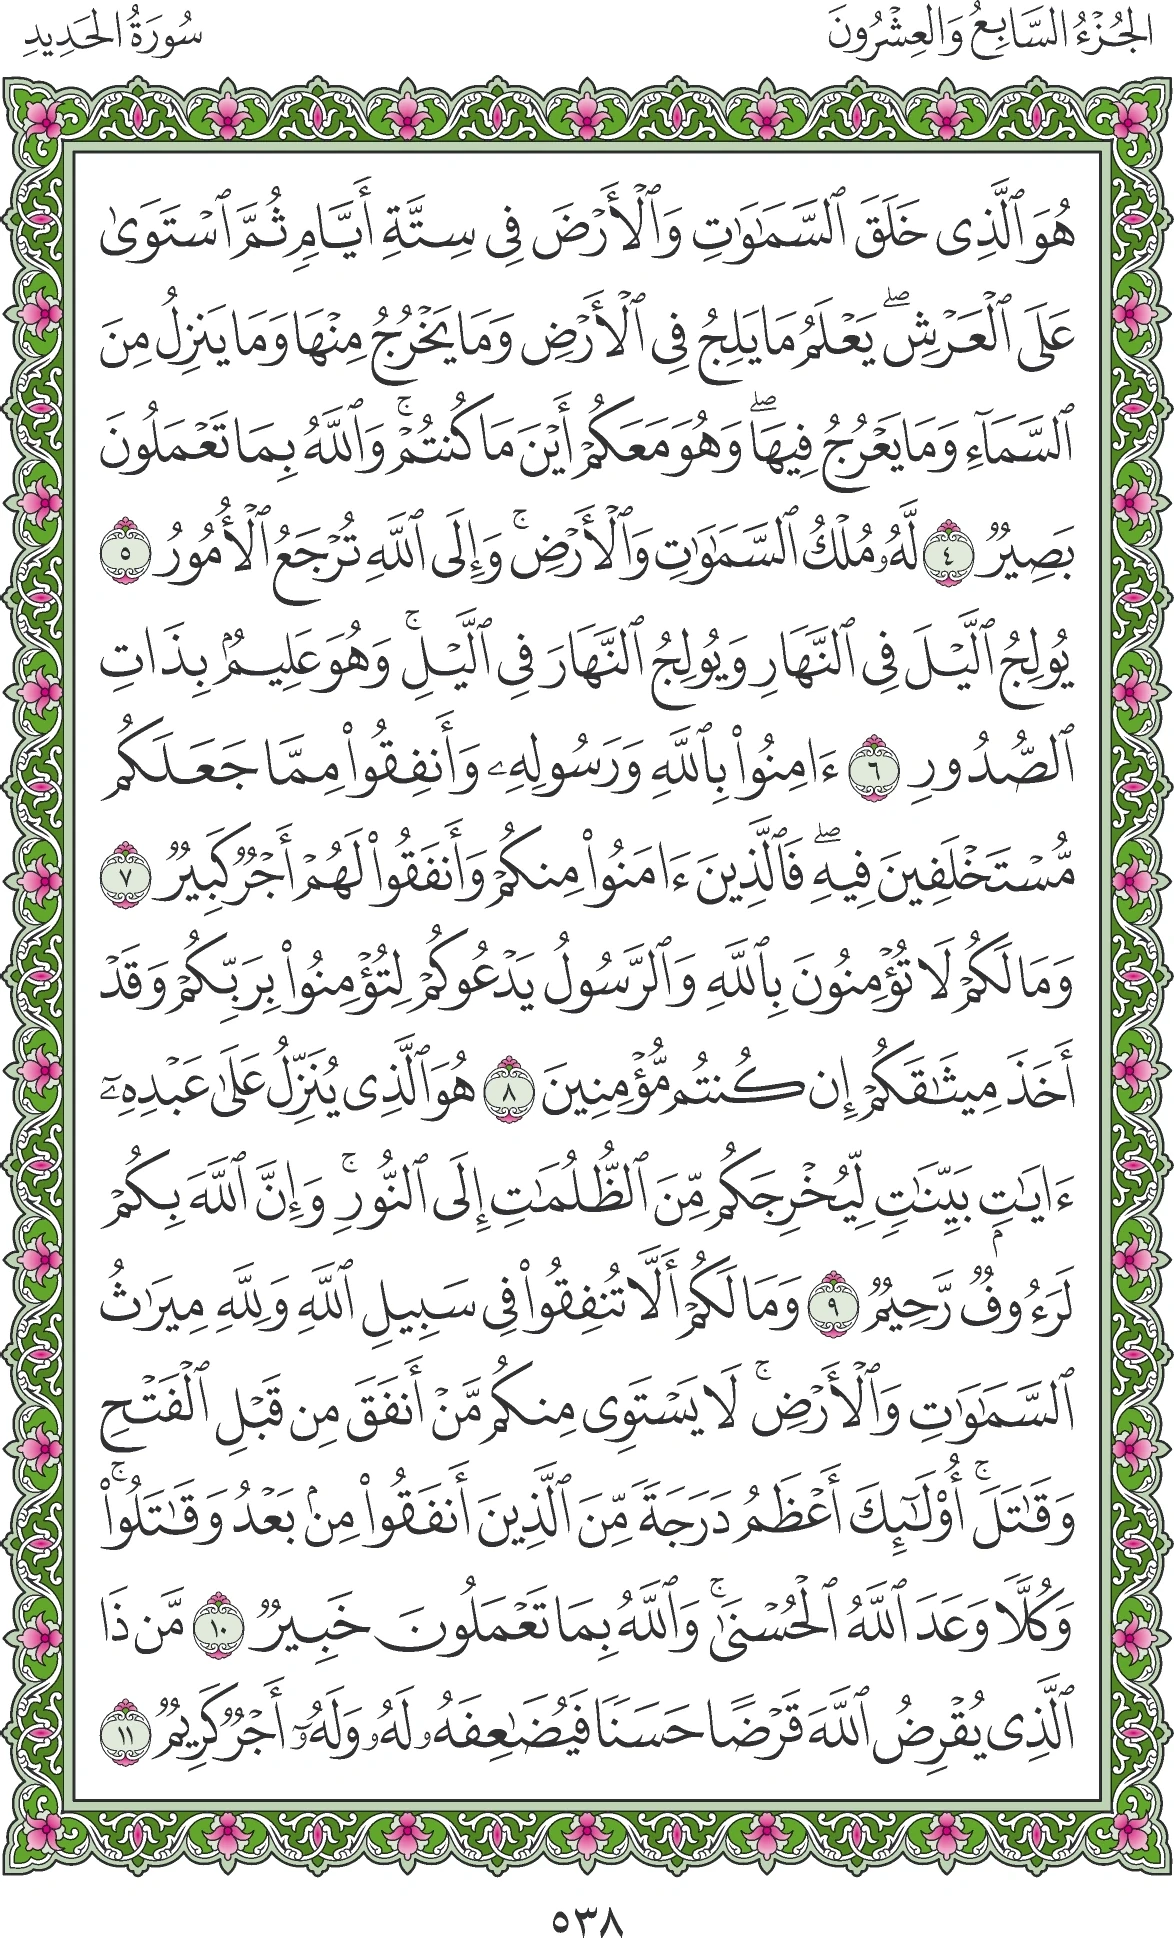 الجُزْءُ السَّابِعُ وَالعِشْرُونَ
سُورَةُ الحَدِيدِ
هُوَ ٱلَّذِى خَلَقَ ٱلسَّمَٰوَٰتِ وَٱلْأَرْضَ فِى سِتَّةِ أَيَّامٍ ثُمَّ ٱسْتَوَىٰ
عَلَى ٱلْعَرْشِۖ يَعْلَمُ مَا يَلِجُ فِى ٱلْأَرْضِ وَمَا يَخْرُجُ مِنْهَا وَمَا يَنزِلُ مِنَ
ٱلسَّمَآءِ وَمَا يَعْرُجُ فِيهَاۖ وَهُوَ مَعَكُمْ أَيْنَ مَا كُنتُمْۚ وَٱللَّهُ بِمَا تَعْمَلُونَ
بَصِيرٌ ٤ لَّهُۥ مُلْكُ ٱلسَّمَٰوَٰتِ وَٱلْأَرْضِۚ وَإِلَى ٱللَّهِ تُرْجَعُ ٱلْأُمُورُ ٥
يُولِجُ ٱلَّيْلَ فِى ٱلنَّهَارِ وَيُولِجُ ٱلنَّهَارَ فِى ٱلَّيْلِۚ وَهُوَ عَلِيمٌۢ بِذَاتِ
ٱلصُّدُورِ ٦ ءَامِنُوا۟ بِٱللَّهِ وَرَسُولِهِۦ وَأَنفِقُوا۟ مِمَّا جَعَلَكُم
مُّسْتَخْلَفِينَ فِيهِۖ فَٱلَّذِينَ ءَامَنُوا۟ مِنكُمْ وَأَنفَقُوا۟ لَهُمْ أَجْرٌ كَبِيرٌ ٧
وَمَا لَكُمْ لَا تُؤْمِنُونَ بِٱللَّهِ وَٱلرَّسُولُ يَدْعُوكُمْ لِتُؤْمِنُوا۟ بِرَبِّكُمْ وَقَدْ
أَخَذَ مِيثَٰقَكُمْ إِن كُنتُم مُّؤْمِنِينَ ٨ هُوَ ٱلَّذِى يُنَزِّلُ عَلَىٰ عَبْدِهِۦٓ
ءَايَٰتٍۭ بَيِّنَٰتٍ لِّيُخْرِجَكُم مِّنَ ٱلظُّلُمَٰتِ إِلَى ٱلنُّورِۚ وَإِنَّ ٱللَّهَ بِكُمْ
لَرَءُوفٌ رَّحِيمٌ ٩ وَمَا لَكُمْ أَلَّا تُنفِقُوا۟ فِى سَبِيلِ ٱللَّهِ وَلِلَّهِ مِيرَٰثُ
ٱلسَّمَٰوَٰتِ وَٱلْأَرْضِۚ لَا يَسْتَوِى مِنكُم مَّنْ أَنفَقَ مِن قَبْلِ ٱلْفَتْحِ
وَقَٰتَلَۚ أُو۟لَٰٓئِكَ أَعْظَمُ دَرَجَةً مِّنَ ٱلَّذِينَ أَنفَقُوا۟ مِنۢ بَعْدُ وَقَٰتَلُوا۟ۚ
وَكُلًّا وَعَدَ ٱللَّهُ ٱلْحُسْنَىٰۚ وَٱللَّهُ بِمَا تَعْمَلُونَ خَبِيرٌ ١٠ مَّن ذَا
ٱلَّذِى يُقْرِضُ ٱللَّهَ قَرْضًا حَسَنًا فَيُضَٰعِفَهُۥ لَهُۥ وَلَهُۥٓ أَجْرٌ كَرِيمٌ ١١
٥٣٨